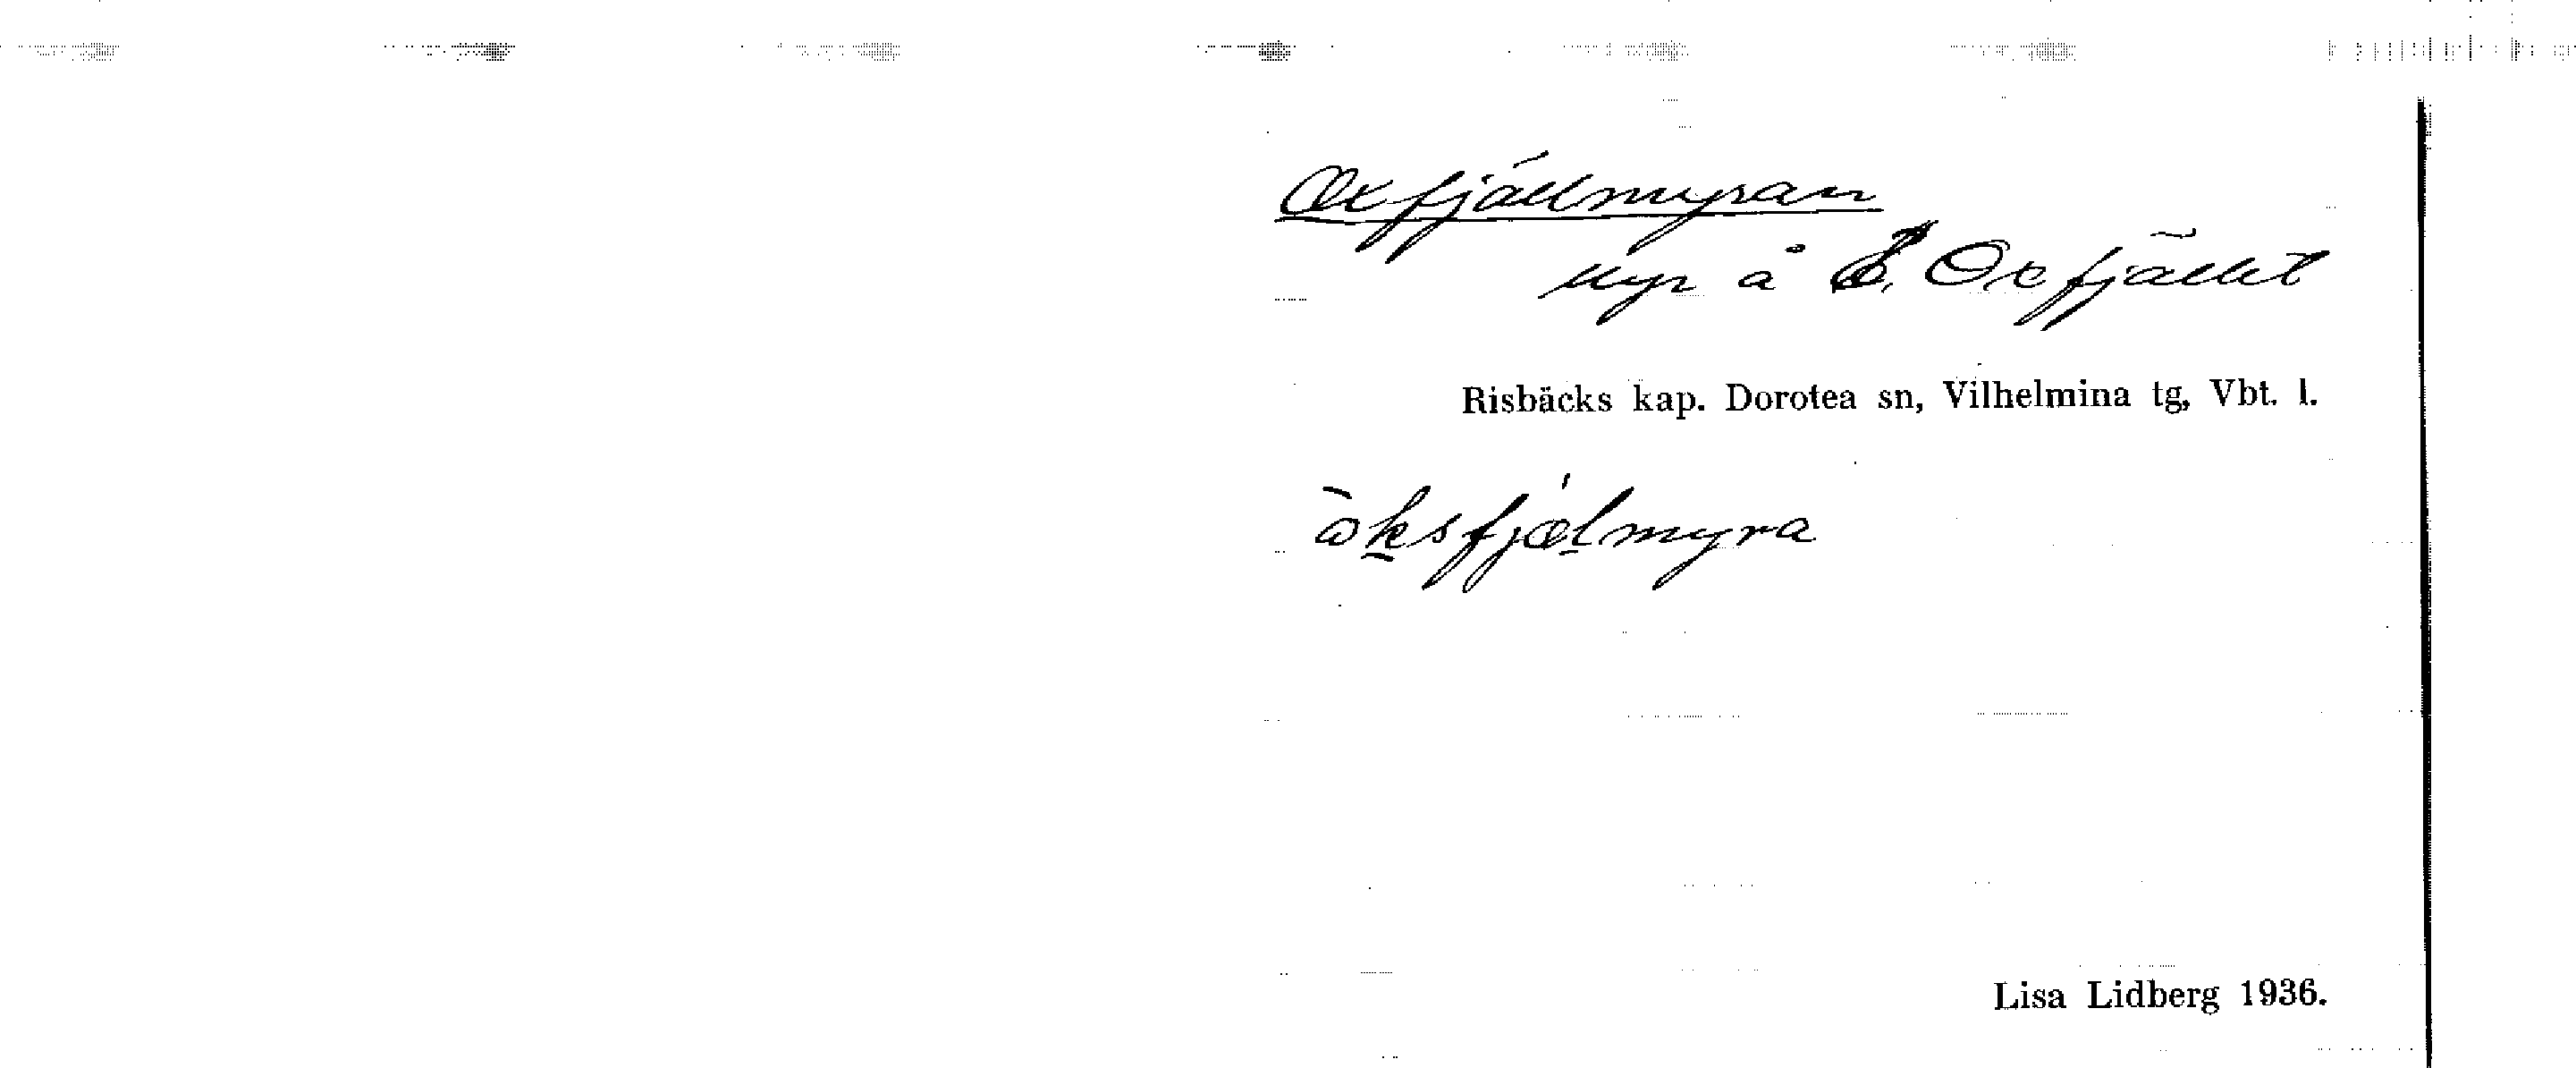 Oxfjällmyran
Myr å Oxfjället
Risbäcks kap. Dorotea sn, Vilhelmina tg, Vbt. l.
Lisa Lidberg 1936.